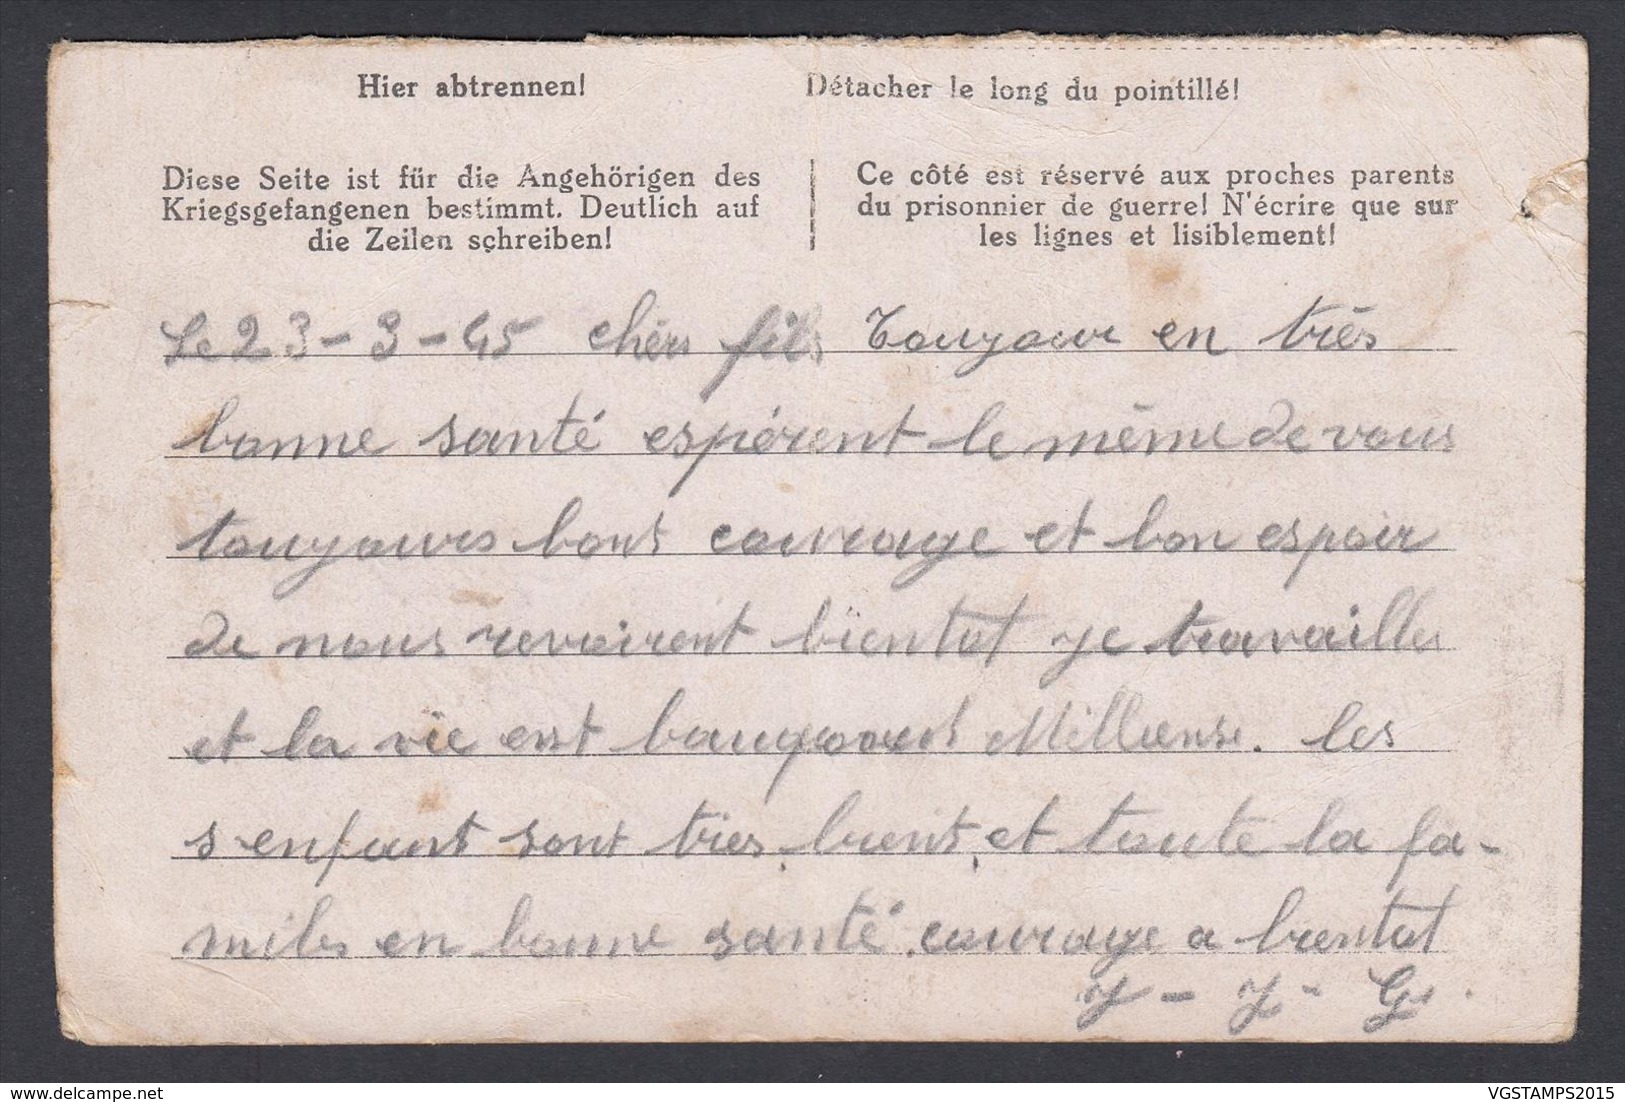 Hier abtrennen! Détacher le long du pointillé!
Diese Seite ist für die Angehörigen des
Kriegsgefangenen bestimmt. Deutlich auf
die Zeilen schreiben!
Ce côté est réservé aux proches parents
du prisonnier de guerre! N'écrire que sur
les lignes et lisiblement!
Le 23-3-45 chers fils Toujour en très
bonne santé espérent le même de vous
toujours bont courage et bon espoir
de nous revoirent bientot je travaille
et la vie est
les
s enfant sont tres bient, et toute la fa-
miles en bonne santé. courage a bientot
J - J - G.
delcampe.net
VGSTAMPS2015